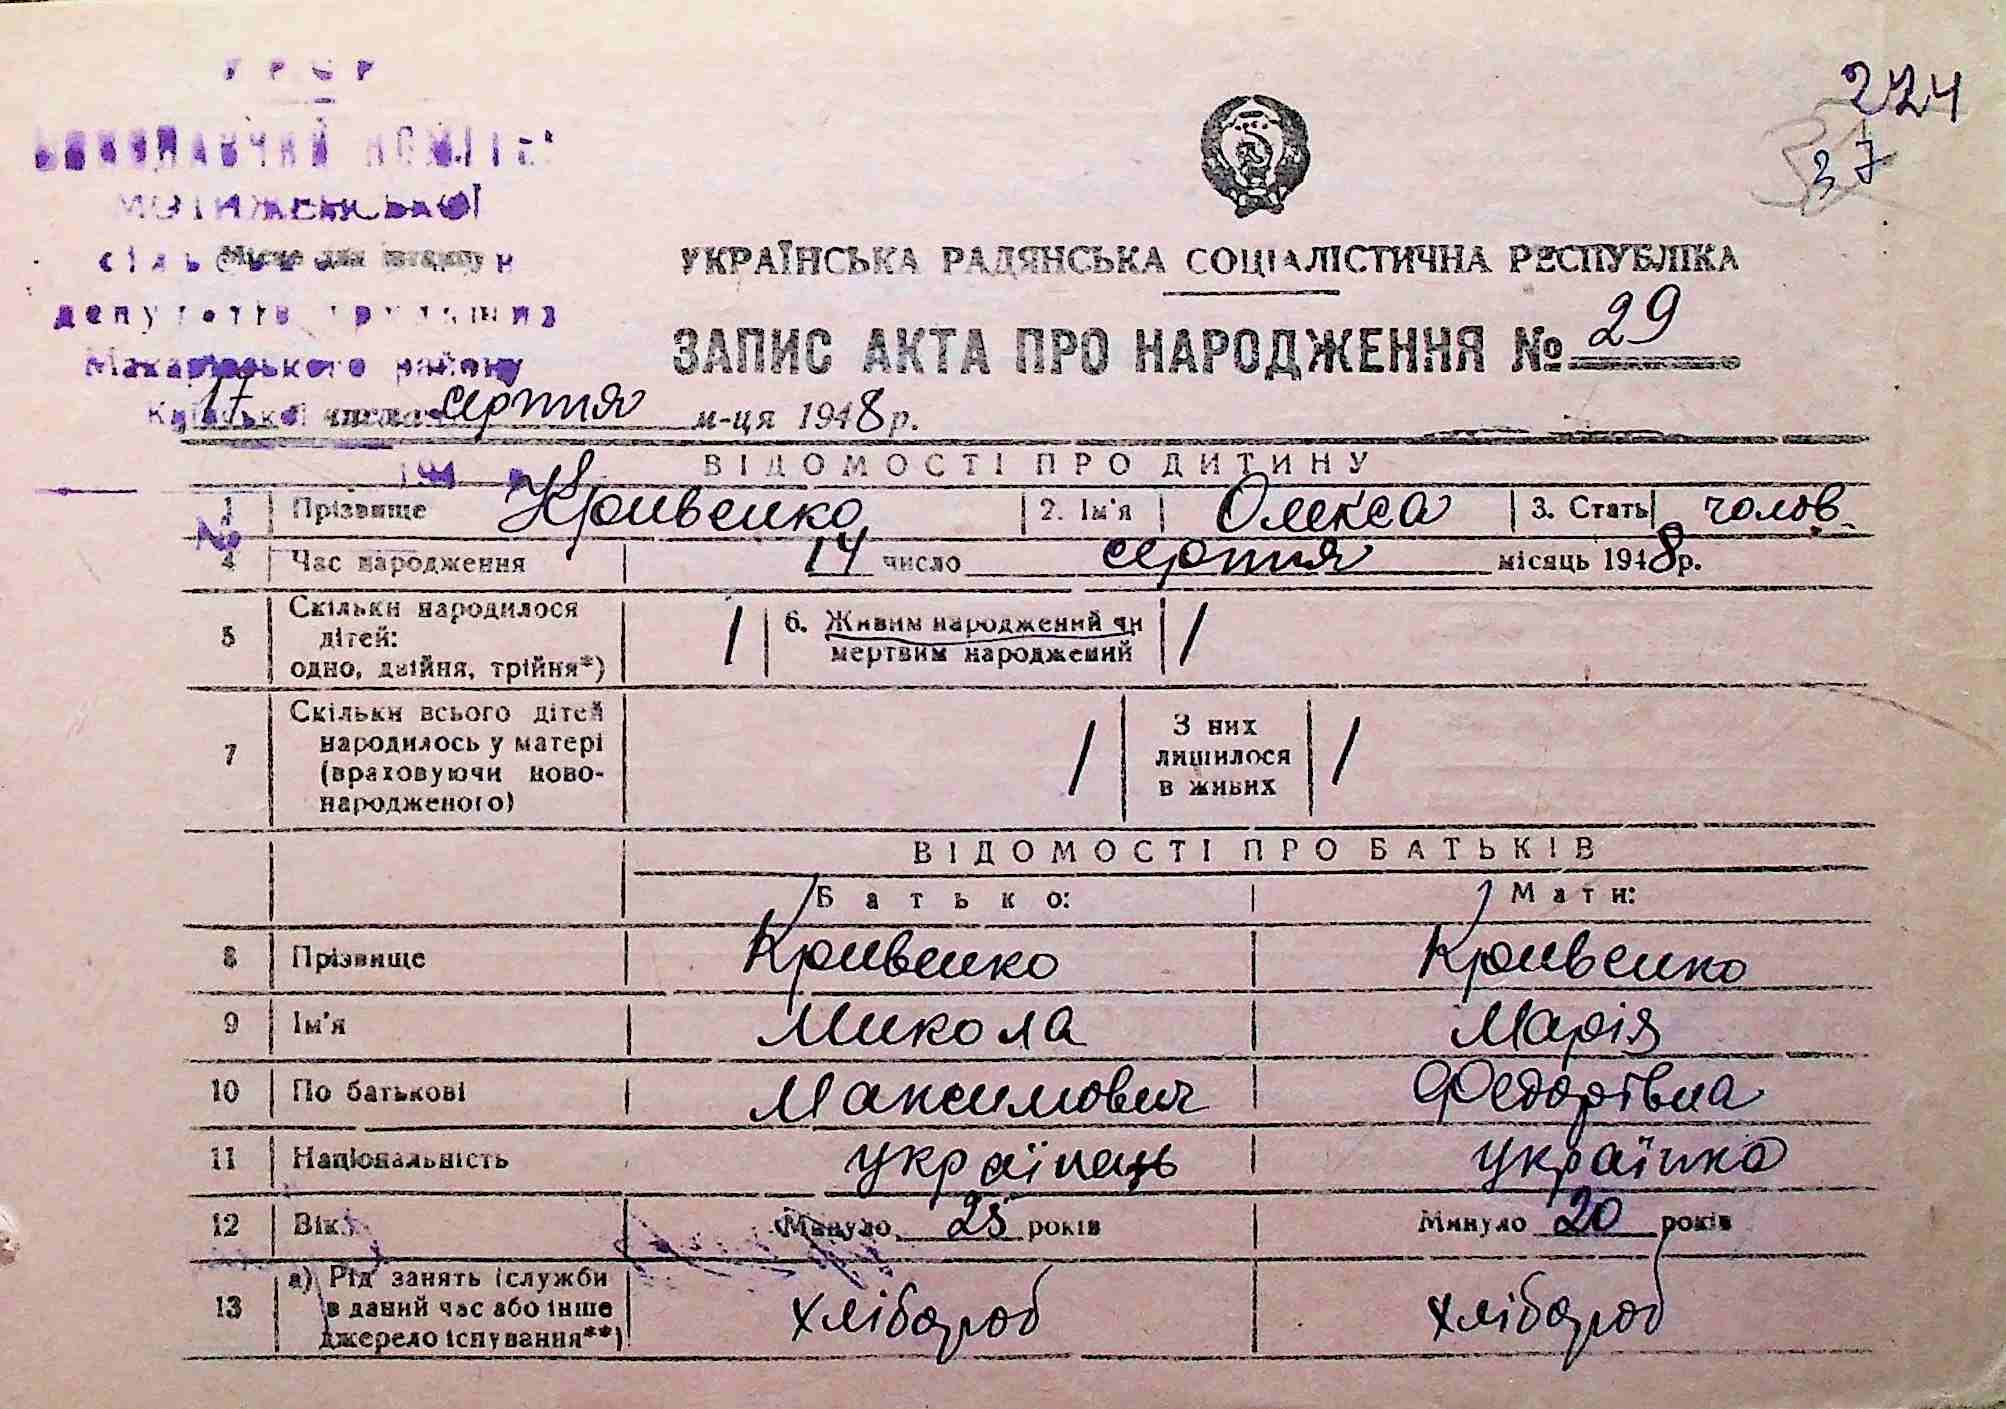 У Р С Р
224
37
ВИКОНАВЧИЙ КОМІТЕТ
МОТИЖЕНСЬКОЇ
Місце для штампу
депутатів трудящих
Макарівського району
УКРАЇНСЬКА РАДЯНСЬКА СОЦІАЛІСТИЧНА РЕСПУБЛІКА
ЗАПИС АКТА ПРО НАРОДЖЕННЯ № 29
17 числа серпня м-ця 1948 р.
194 р.
ВІДОМОСТІ ПРО ДИТИНУ
№
1 Прізвище Кривенко 2. Ім'я Олекса 3. Стать чолов.
4 Час народження 14 число серпня місяць 1948 р.
5 Скільки народилося дітей: одно, двійня, трійня*) 1 6. Живим народжений чи мертвим народжений 1
7 Скільки всього дітей народилось у матері (враховуючи ново-народженого) 1 З них лишилося в живих 1
ВІДОМОСТІ ПРО БАТЬКІВ
Батько: Мати:
8 Прізвище Кривенко Кривенко
9 Ім'я Микола Марія
10 По батькові Максимович Федорівна
11 Національність українець українка
12 Вік Минуло 25 років Минуло 20 років
13 а) Рід занять (служби в даний час або інше джерело існування**) хлібороб хлібороб